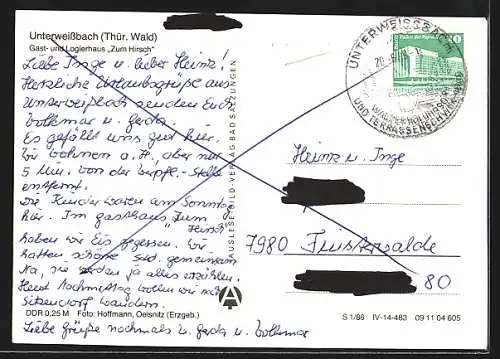 Unterweißbach (Thür. Wald)
Gast- und Logierhaus „Zum Hirsch"
Liebe Inge u. lieber Heinz!
Herzliche Urlaubsgrüße aus
Unterweißbach senden Euch
Volkmar u. Gerda.
Es gefällt uns gut hier.
Wir wohnen a. H. aber nur
5 Min. von der Verpfl.-Stelle
entfernt.
Die Kinder waren am Sonntag
hier. Im Gasthaus „Zum
Hirsch"
haben wir Eis gegessen. Wir
hatten schöne Std. gemeinsam
Na, sie werden ja alles erzählen.
Heut Nachmittag wollen wir nach
Sitzendorf wandern.
DDR 0,25 M Foto: Hoffmann, Oelsnitz (Erzgeb.)
Liebe Grüße nochmals v. Gerda u. Volkmar
AUSLESE-BILD-VERLAG BAD SALZUNGEN
UNTERWEISSBACH
WALDERHOLUNGSORT
UND TERRASSENSCHWIMMBAD
Heinz u. Inge
7980 Finsterwalde
80
S 1/86 IV-14-483 09 11 04 605